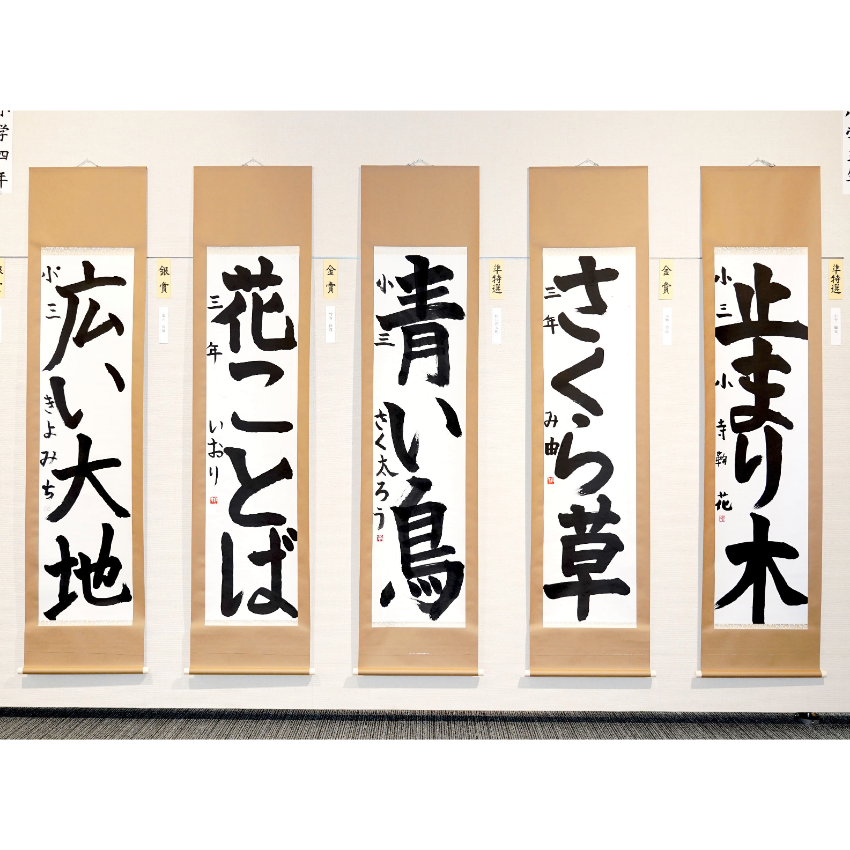 準特選
止まり木
小三 小寺 花
金賞
さくら草
三年 み由
準特選
青い鳥
小三 さく太ろう
金賞
花ことば
三年 いおり
銀賞
広い大地
小三 きよみち
小学四年